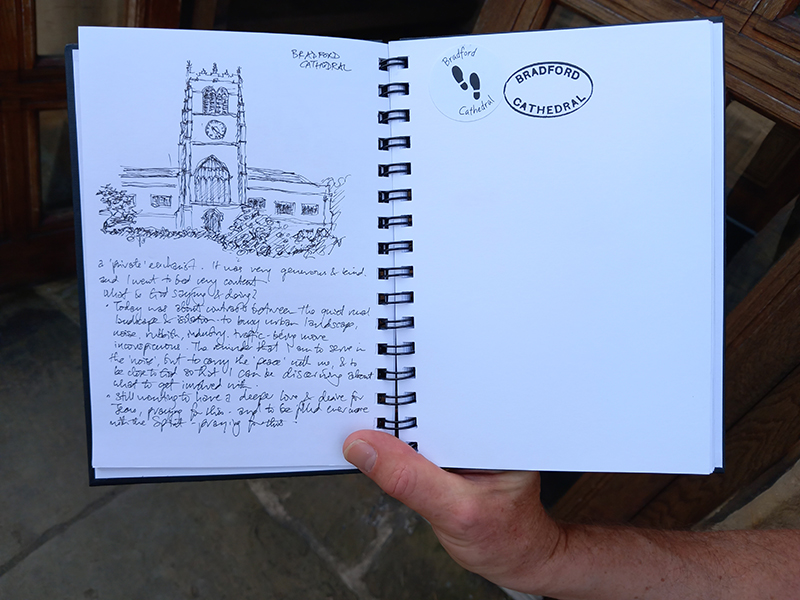 BRADFORD
CATHEDRAL
a 'private' eucharist. It was very generous & kind.
and I went to bed very content
What is God saying & doing?
• Today was about contrasts between the quiet rural
landscape & isolation to busy urban landscape,
noise, rubbish, industry, traffic - being more
inconspicuous. The reminds that I am to serve in
the 'noise', but to carry the 'peace' with me, & to
be close to God so that I can be discerning about
what to get involved with.
• Still wanting to have a deeper love & desire for
Jesus, praying for this - and to be filled ever more
with the Spirit - praying for this.
Bradford
Cathedral
BRADFORD
CATHEDRAL